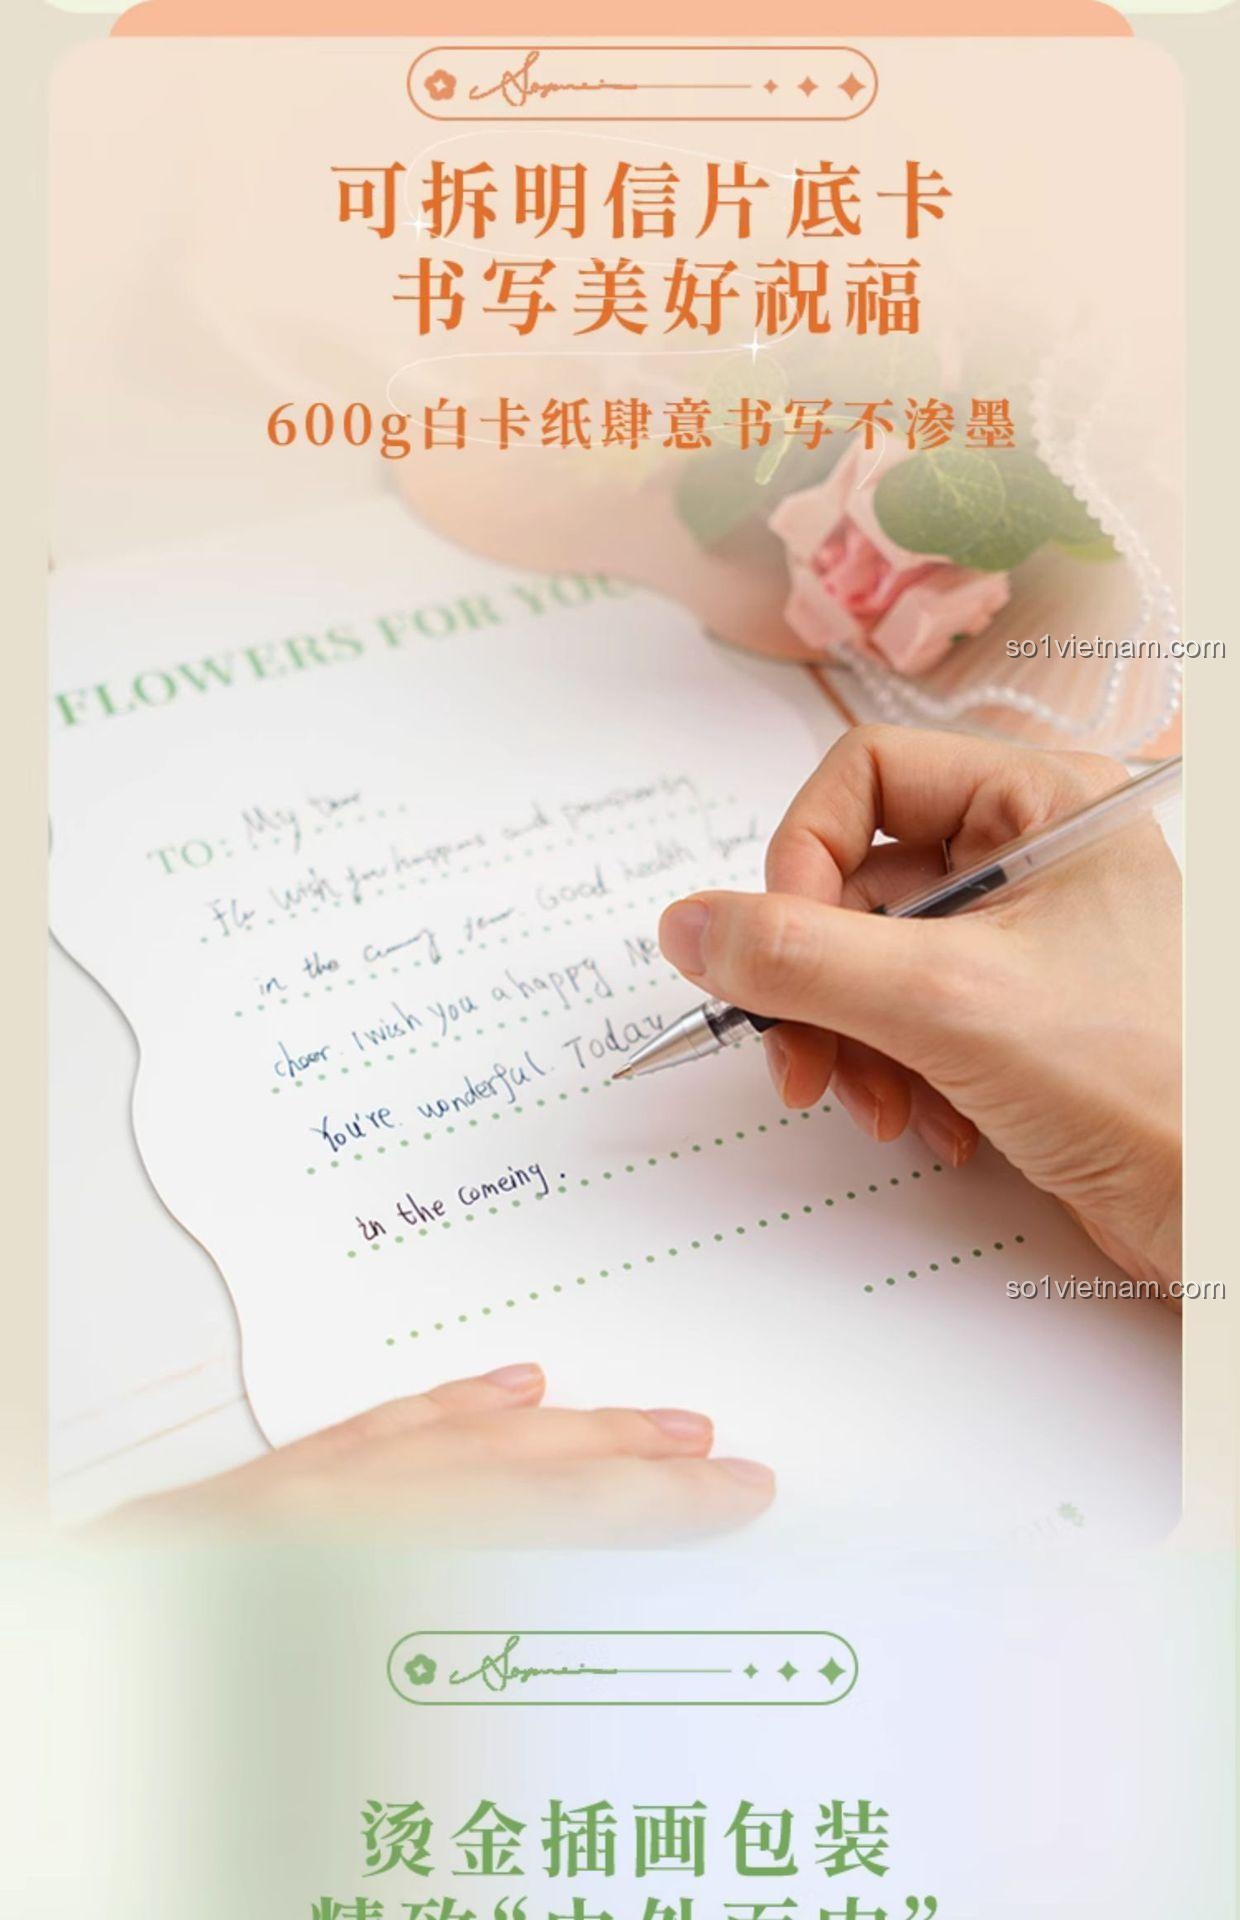 可拆明信片底卡
书写美好祝福
600g白卡纸肆意书写不渗墨
FLOWERS FOR YOU
so1vietnam.com
TO: My Dear
wish for happiness and
in the coming year. Good health good
cheer. I wish you a happy Ne
You're wonderful. Today
in the comeing.
so1vietnam.com
烫金插画包装